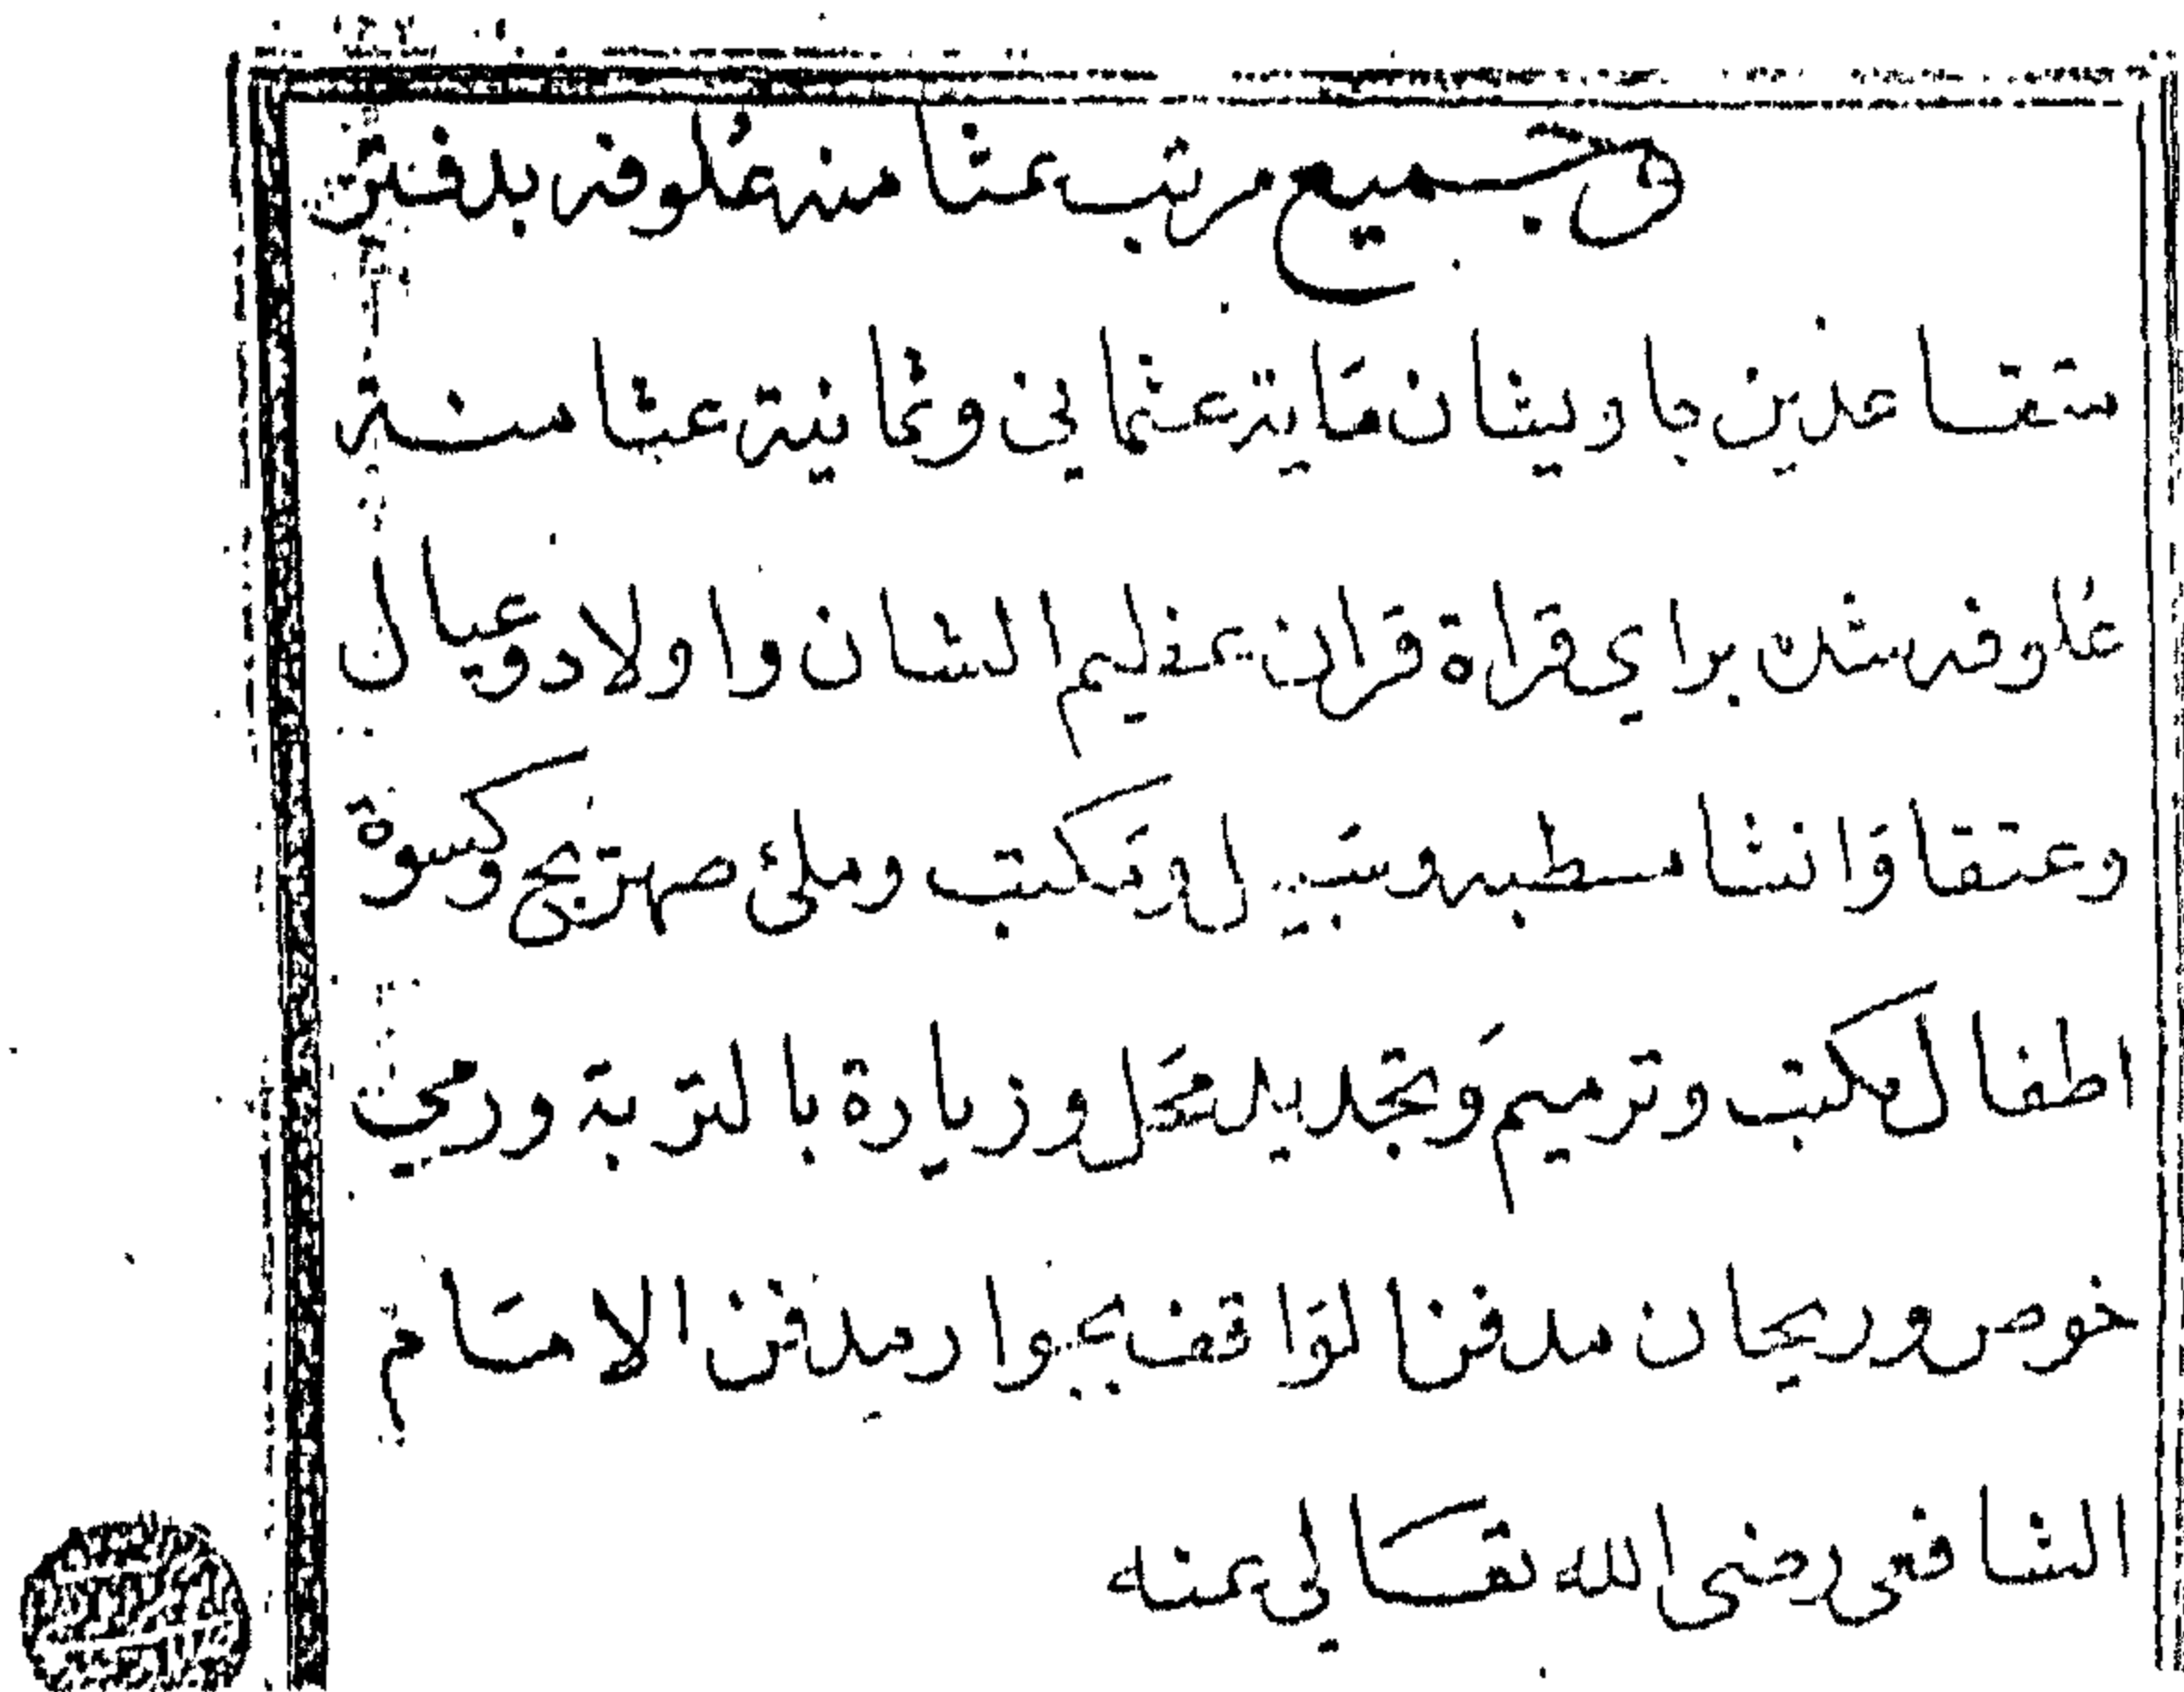 وجميع مرتب عثامنه علوفه بدفتر
متقاعدين جاويشان ماية عثماني وثمانية عثامنة
علوفه شدن براي قراة قران عظيم الشان واولاد وعيال
وعتقا وانشا مسطبه وسبيل ومكتب وملئ صهريج وكسوة
اطفال مكتب وترميم وتجديد محل وزيارة بالتربة ورمي
خوص وريحان مدفنا لواقف بجوار مدفن الامام
الشافعى رضى الله تعالي عنه